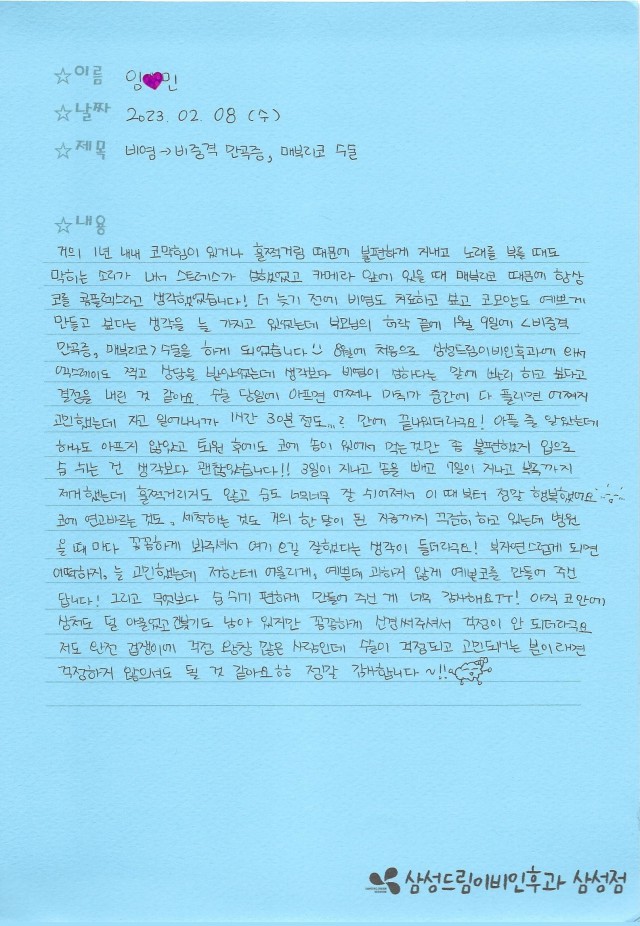 ☆이름 임♥민
☆날짜 2023. 02. 08 (수)
☆제목 비염→비중격 만곡증, 매부리코 수술
☆내용
거의 1년 내내 코막힘이 있거나 훌쩍거림 때문에 불편하게 지내고 노래를 부를 때도
막히는 소리가 나서 스트레스가 심했었고 카메라 앞에 있을 때 매부리코 때문에 항상
코를 콤플렉스라고 생각했었습니다! 더 늦기 전에 비염도 치료하고 싶고 코모양도 예쁘게
만들고 싶다는 생각을 늘 가지고 있었는데 부모님의 허락 끝에 1월 9일에 <비중격
만곡증, 매부리코> 수술을 하게 되었습니다 8월에 처음으로 삼성드림이비인후과에 와서
엑스레이도 찍고 상담을 받았었는데 생각보다 비염이 심하다는 말에 빨리 하고 싶다고
결정을 내린 것 같아요 수술 당일에 아프면 어쩌나 마취가 중간에 다 풀리면 어쩌지
고민했는데 자고 일어나니까 1시간 30분 정도...? 만에 끝나있더라구요! 아플 줄 알았는데
하나도 아프지 않았고 퇴원 후에도 코에 솜이 있어서 먹는것만 좀 불편했지 입으로
숨 쉬는 건 생각보다 괜찮았습니다!! 3일이 지나고 솜을 빼고 7일이 지나고 부목까지
제거했는데 훌쩍거리지도 않고 숨도 너무너무 잘 쉬어져서 이 때부터 정말 행복했어요
코에 연고바르는 것도, 세척하는 것도 거의 한 달이 된 지금까지 꾸준히 하고 있는데 병원
올 때 마다 꼼꼼하게 봐주셔서 여기 오길 잘했다는 생각이 들더라구요! 부자연스럽게 되면
어떡하지, 늘 고민했는데 저한테 어울리게, 예쁜데 과하지 않게 예쁜코를 만들어 주신
답니다! 그리고 무엇보다 숨 쉬기 편하게 만들어 주신 게 너무 감사해요ㅜㅜ! 아직 코 안에
상처도 덜 아물었고 붓기도 남아 있지만 꼼꼼하게 신경써주셔서 걱정이 안 되더라구요
저도 완전 겁쟁이에 걱정 완창 많은 사람인데 수술이 걱정되고 고민되는 분이라면
걱정하지 않으셔도 될 것 같아요ㅎㅎ 정말 감사합니다~!!
삼성드림이비인후과 삼성점